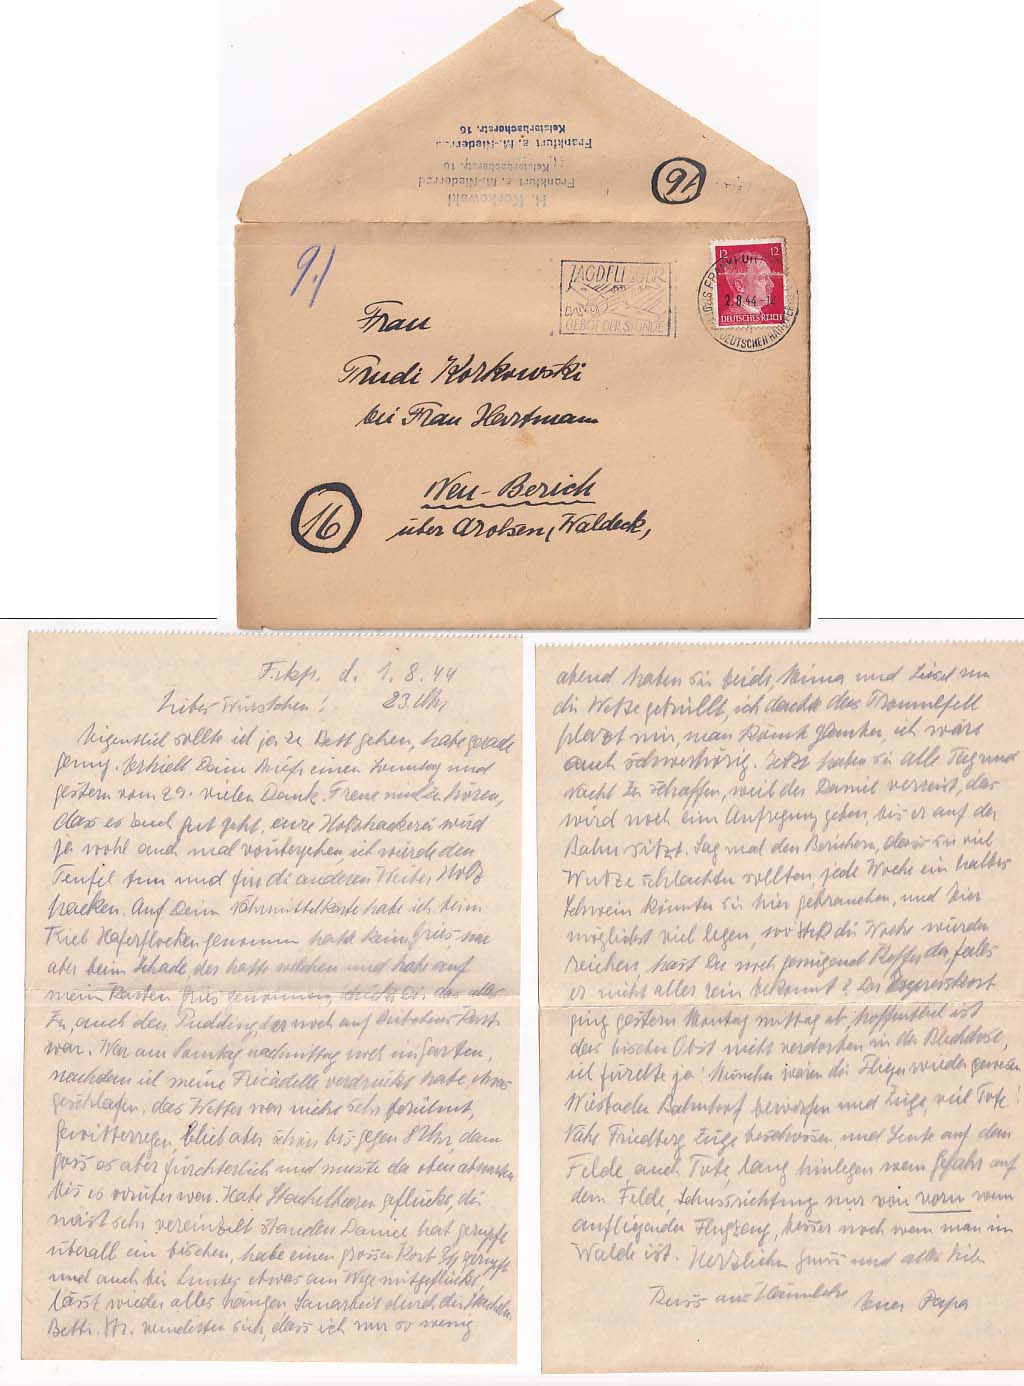 H. Korkowski
Frankfurt a. M.-Niederrad
Kelsterbacherstr. 16
Frankfurt a. M.-Niederrad
Kelsterbacherstr. 16
16
9./
JAGDFLIEGER
DAS
GEBOT DER STUNDE
12 12
FRANKFURT
2.8.44
DEUTSCHES REICH
Frau
Trudi Korkowski
bei Frau Hartmann
Neu-Berich
über Arolsen, Waldeck,
16
d. 1.8.44
Lieber Würstchen! 23 Uhr
Eigentlich sollte ich ja zu Bett gehen, habe gerade
genug. Erhielt Deine Briefe einen Sonntag und
gestern vom 29. vielen Dank. Freue mich zu hören,
dass es Euch gut geht, eure Holzhackerei wird
ja wohl auch mal vorübergehen, ich würde den
Teufel tun und für die anderen Weiber Holz
hacken. Auf Deine Nährmittelkarte habe ich beim
Kiel Haferflocken genommen hatte keinen Gries, war
aber beim Schade der hatte welchen und habe auf
meine Karten Gries genommen, schicke Dir das alles
zu, auch den Pudding der noch auf
war. War am Sonntag nachmittag noch im Garten,
nachdem ich meine Fricadelle verdrückt habe, etwas
geschlafen, das Wetter war nicht sehr berühmt,
Gewitterregen, blieb aber schön bis gegen 8 Uhr, dann
goss es aber fürchterlich und musste da oben abwarten
bis es vorüber war. Habe Stachelbeeren gepflückt, die
meist sehr vereinzelt standen Daniel hat gerupft
überall ein bischen, habe einen grossen Korb
und auch bei etwas am Wege mitgepflückt,
lässt wieder alles hängen, Sauarbeit durch die Stacheln
Bett. wunderten sich, dass ich nur so wenig
abend haben sie beide, Minna und Liesel um
die Wette gebrüllt, ich dachte das Trommelfell
platzt mir, man könnte glauben, ich wäre
auch schwerhörig. Jetzt haben sie alle Tag und
Nacht zu schaffen, weil der Daniel verreist, das
wird noch eine Aufregung geben, bis er auf der
Bahn sitzt. Sag mal den Berichern, dass sie viel
Wutze schlachten sollten, jede Woche ein halbes
Schwein könnten sie hier gebrauchen, und Eier
möglichst viel legen, die Woche würden
reichen, hast Du noch genügend Koffer da, falls
er nicht alles rein bekommt? Die Expresskost
ging gestern Montag mittag ab, hoffentlich ist
das bischen Obst nicht verdorben in der Blechdose,
ich fürchte ja! München waren die Flieger wieder gewesen
Wiesbaden Bahnhof beworfen und Züge, viel Tote!
Nähe Friedberg Züge beschossen, und Leute auf dem
Felde, auch Tote, lang hinlegen wenn Gefahr auf
dem Felde, Schussrichtung nur von vorn wenn
anfliegender Flugzeug, besser noch wenn man im
Walde ist. Herzlichen Gruss und alles Liebe
Euer Papa